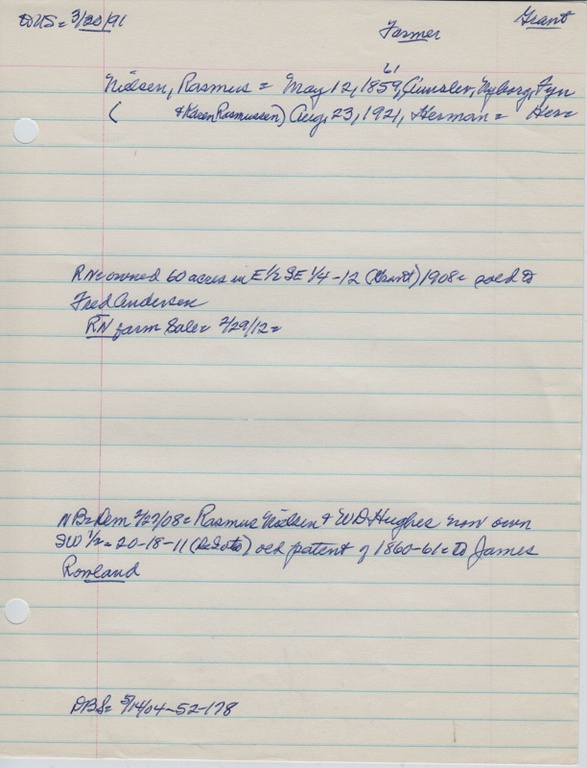 DUS = 3/20/91
Grant
Farmer
61
Nielsen, Rasmus = May 12, 1859, Nyborg, Fyn
( & Karen Rasmussen) Aug. 23, 1921, Herman = Her =
RN = owned 60 acres in E 1/2 SE 1/4 - 12 (Grant) 1908 = sold to
Fred Andersen
RN farm Sale = 2/29/12 =
NB = Dem 2/27/08 = Rasmus Nielsen & WD Hughes now own
SW 1/2 = 20-18-11 (DeSoto) old patent of 1860-61 = to James
Rowland
DBS = 5/14/04 - 52-178